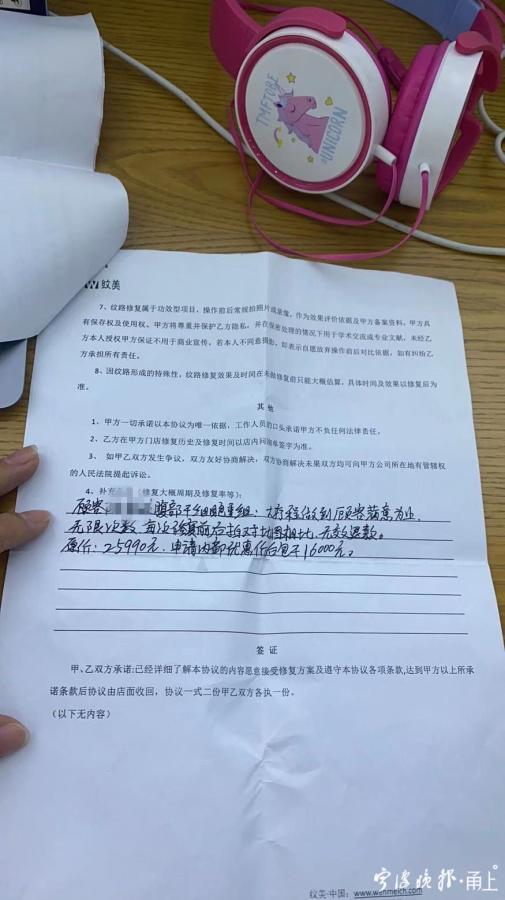 TMFTOBE
UNICORN
W 纹美
7、纹路修复属于功效型项目，操作前后常规拍照片或录像，作为效果评价依据及甲方备案资料，甲方具
有保存权及使用权。甲方将尊重并保护乙方隐私，并在保密处理的情况下用于学术交流或专业文献，未经乙
方本人授权甲方保证不用于商业宣传。若本人不同意摄影，即表示自愿放弃操作前后对比依据，如有纠纷乙
方承担所有责任。
8、因纹路形成的特殊性，纹路修复效果及时间在未做修复前只能大概估算，具体时间及效果以修复后为
准。
其 他
1、甲方一切承诺以本协议为唯一依据，工作人员的口头承诺甲方不负任何法律责任。
2、乙方在甲方门店修复历史及修复时间以店内问询单签字为准。
3、 如甲乙双方发生争议，双方友好协商解决，双方协商解决未果双方均可向甲方公司所在地有管辖权
的人民法院提起诉讼。
4、补充 修复大概周期及修复率等）：
顾客 腹部干细胞重组：大疗程做到顾客满意为止，
无限次数，每次修复前后拍对比图相比，无效退款。
原价：25990元，申请内部优惠价包干16000元。
签 证
甲、乙双方承诺:已经详细了解本协议的内容愿意接受修复方案及遵守本协议各项条款,达到甲方以上所承
诺条款后协议由店面收回，协议一式二份甲乙双方各执一份。
（以下无内容）
宁波晚报·甬上
纹美·中国：www.wenmeich.com